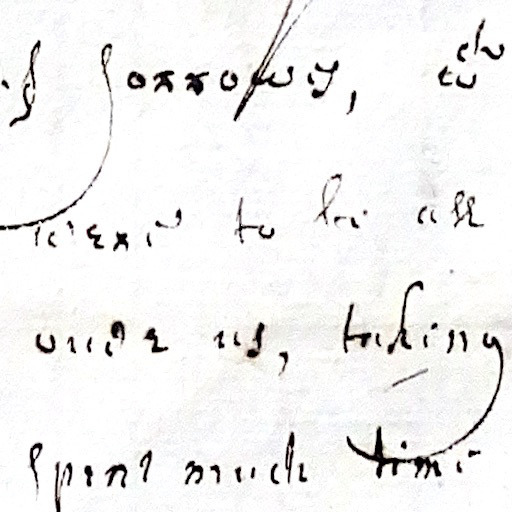 of sorrows, wch
were to be all
unde us, taking
spent much time